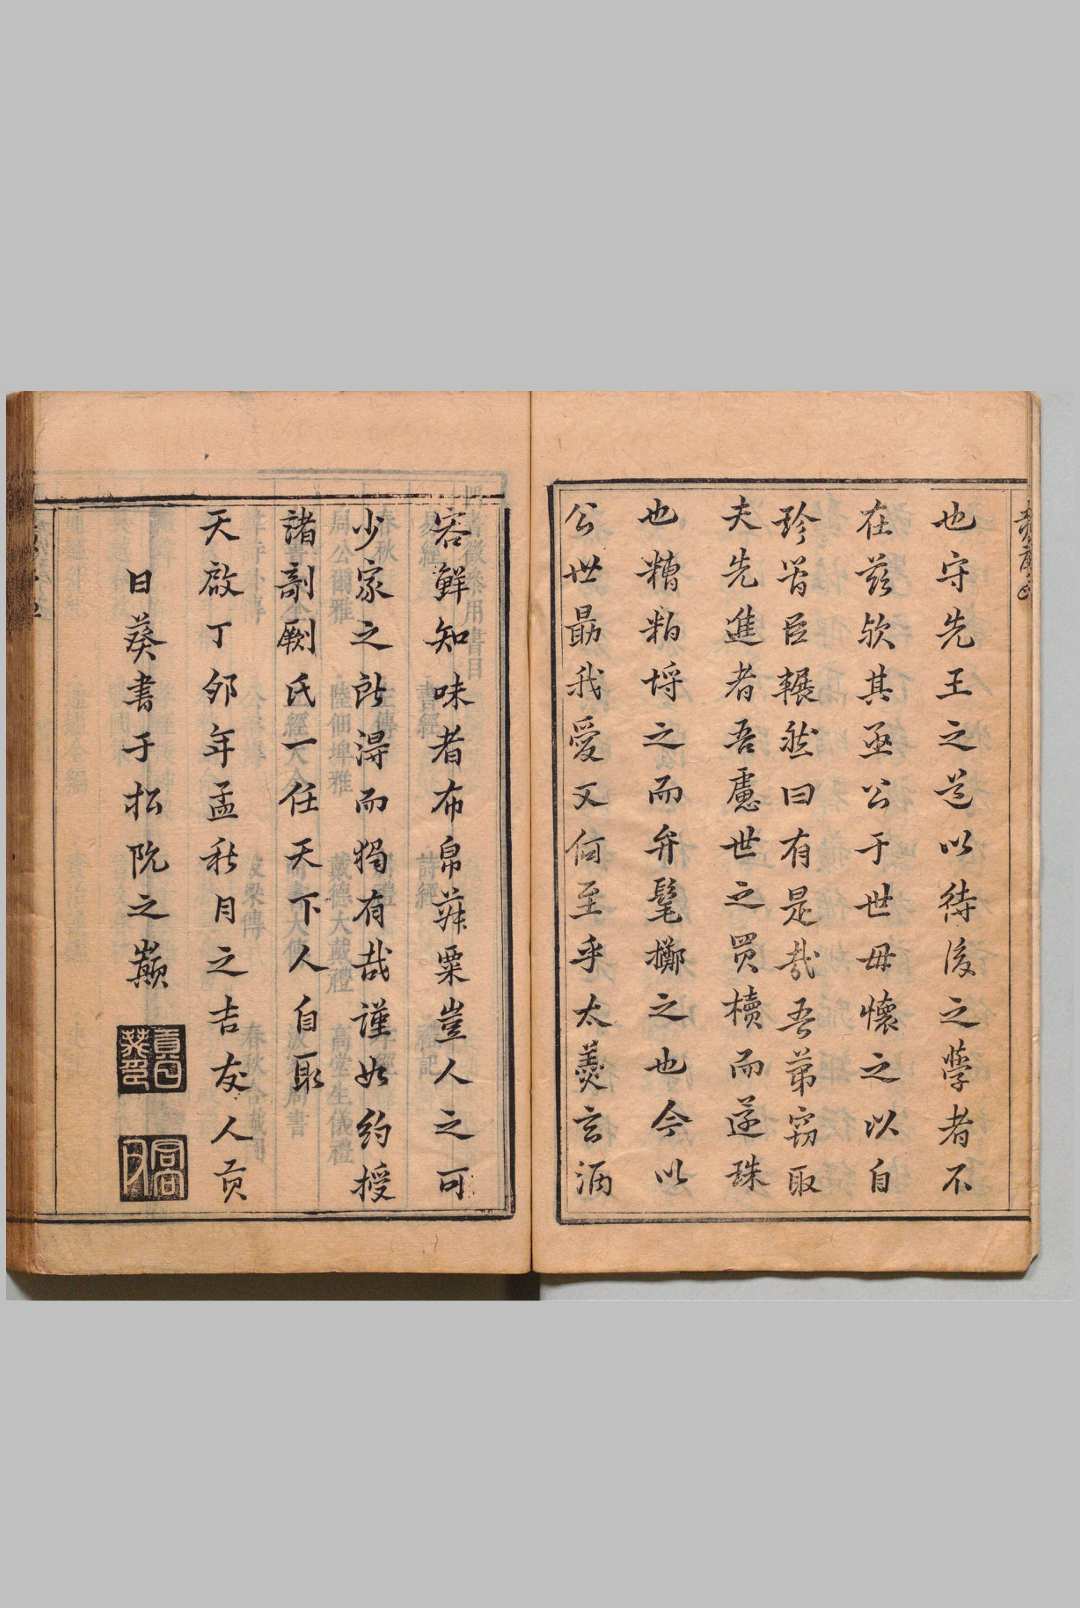 也守先王之道以待後之學者不
在茲欤其亟公于世毋懷之以自
珍臣輾然曰有是哉吾第竊取
夫先進者吾慮世之買櫝而還珠
也糟粕埒之而弁髦擲之也今以
公世勗我愛又何至乎太羹玄酒
容鮮知味者布帛菽粟豈人之可
少家之所得而獨有哉謹如約授
諸剞劂氏一任天下人自取
天啟丁卯年孟秋月之吉友人貢
日葵書于松阮之巔